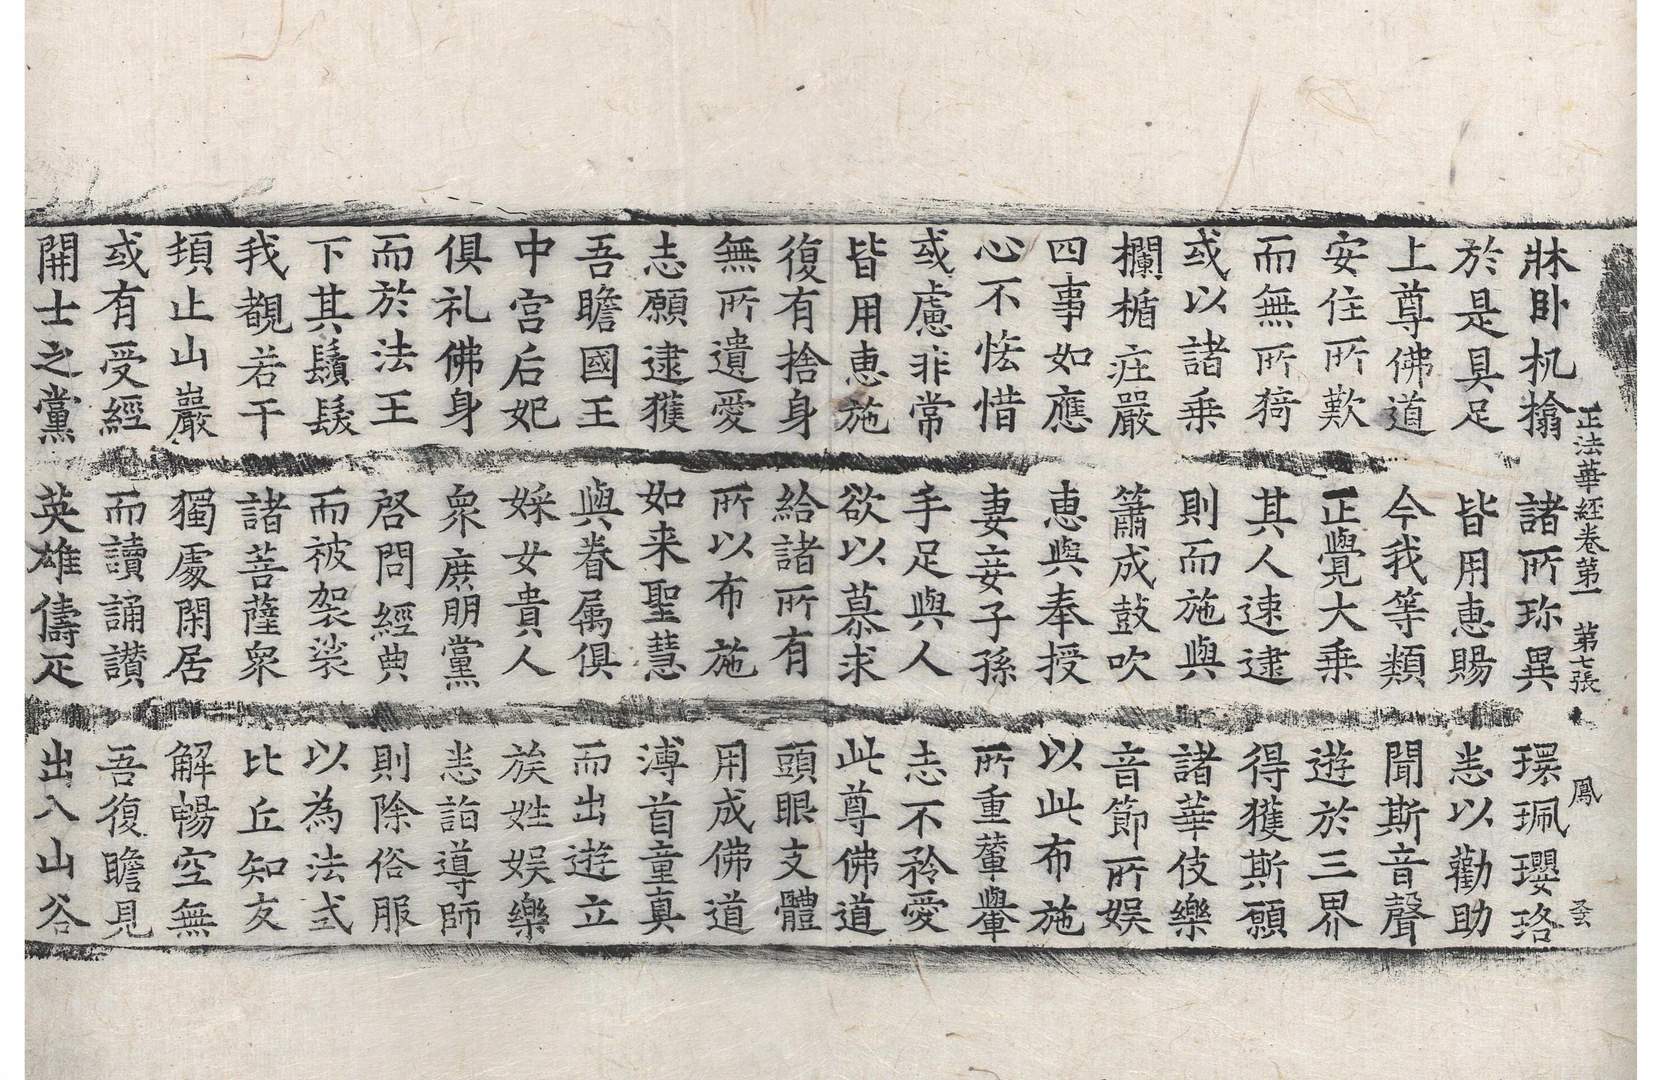 正法華經卷第一　第七張　鳳
牀卧机搨　諸所珎異　環珮瓔珞
於是具足　皆用惠賜　悉以勸助
上尊佛道　今我等類　聞斯音聲
安住所歎　正覺大乗　遊於三界
而無所猗　其人速逮　得獲斯願
或以諸乗　則而施與　諸華伎樂
欄楯庄嚴　簫成鼓吹　音節所娛
四事如應　惠與奉授　以此布施
心不恡惜　妻妾子孫　所重輦轝
或慮非常　手足與人　志不矜愛
皆用惠施　欲以慕求　此尊佛道
復有捨身　給諸所有　頭眼支體
無所遺愛　所以布施　用成佛道
志願逮獲　如来聖慧　溥首童真
吾瞻國王　與眷属俱　而出遊立
中宮后妃　婇女貴人　族姓娛樂
俱礼佛身　衆庶朋黨　悉詣導師
而於法王　啓問經典　則除俗服
下其鬚髮　而被袈裟　以為法式
我覩若干　諸菩薩衆　比丘知友
頂止山巖　獨處閑居　解暢空無
或有受經　而讀誦讃　吾復瞻見
開士之黨　英雄儔疋　出入山谷